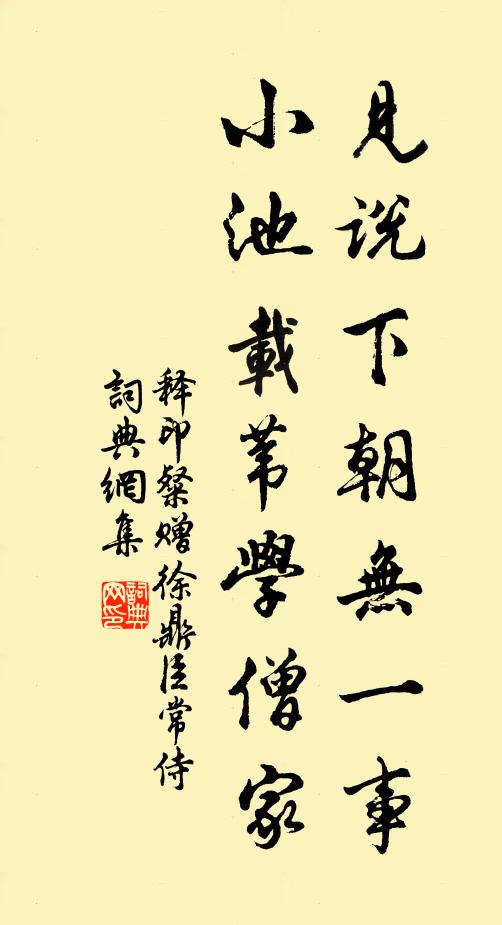 見説下朝無一事
小池載苇學僧家
释印粲赠徐鼎臣常侍
詞典網集
詞典
网印